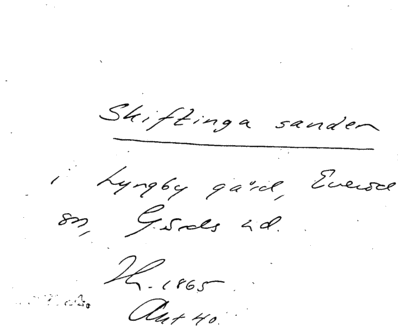 Skiftinga sanden
i Lyngby gård, Everöd
sn, Gärds hd.
1865
Ant 40.